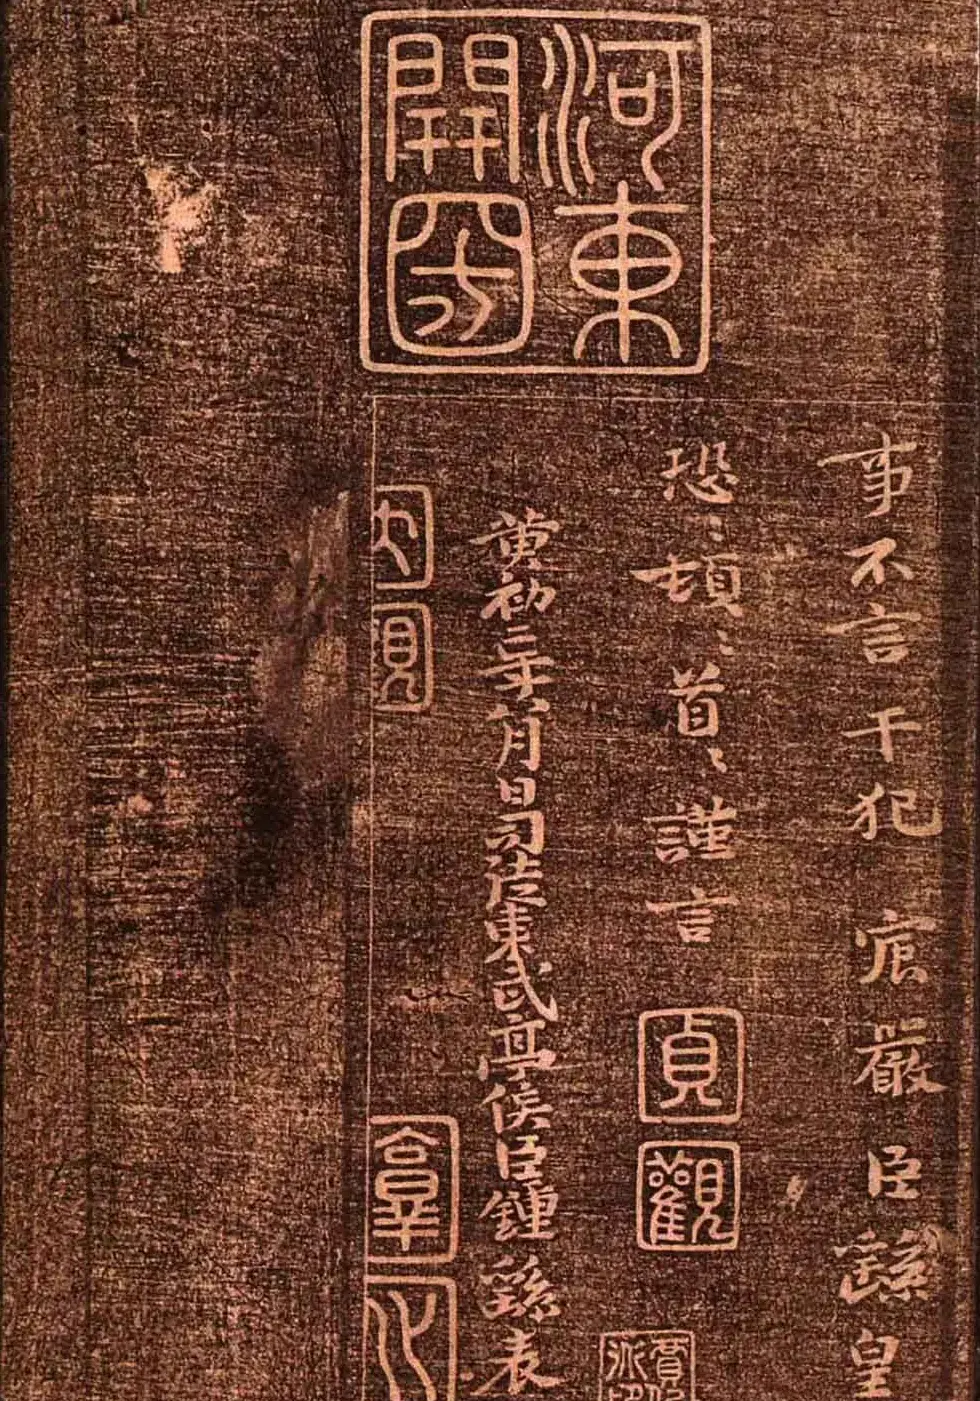 河東
開
事不言干犯宸嚴臣繇皇
恐〻頓〻首〻謹言
貞
觀
黃初二年八月日司徒東武亭侯臣鍾繇表